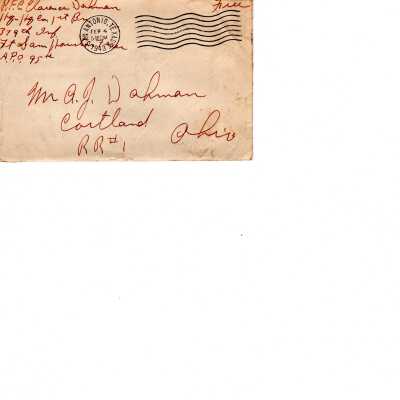 P.F.C Clarence Dahman
Hq. Hq Co. 1st Bn
379th Inf
Ft Sam Houston Tex
A.P.O. 95th
Free
SAN ANTONIO, TEXAS
FEB 4
1943
Mr A. J. Dahman
Cortland
Ohio
RR#1